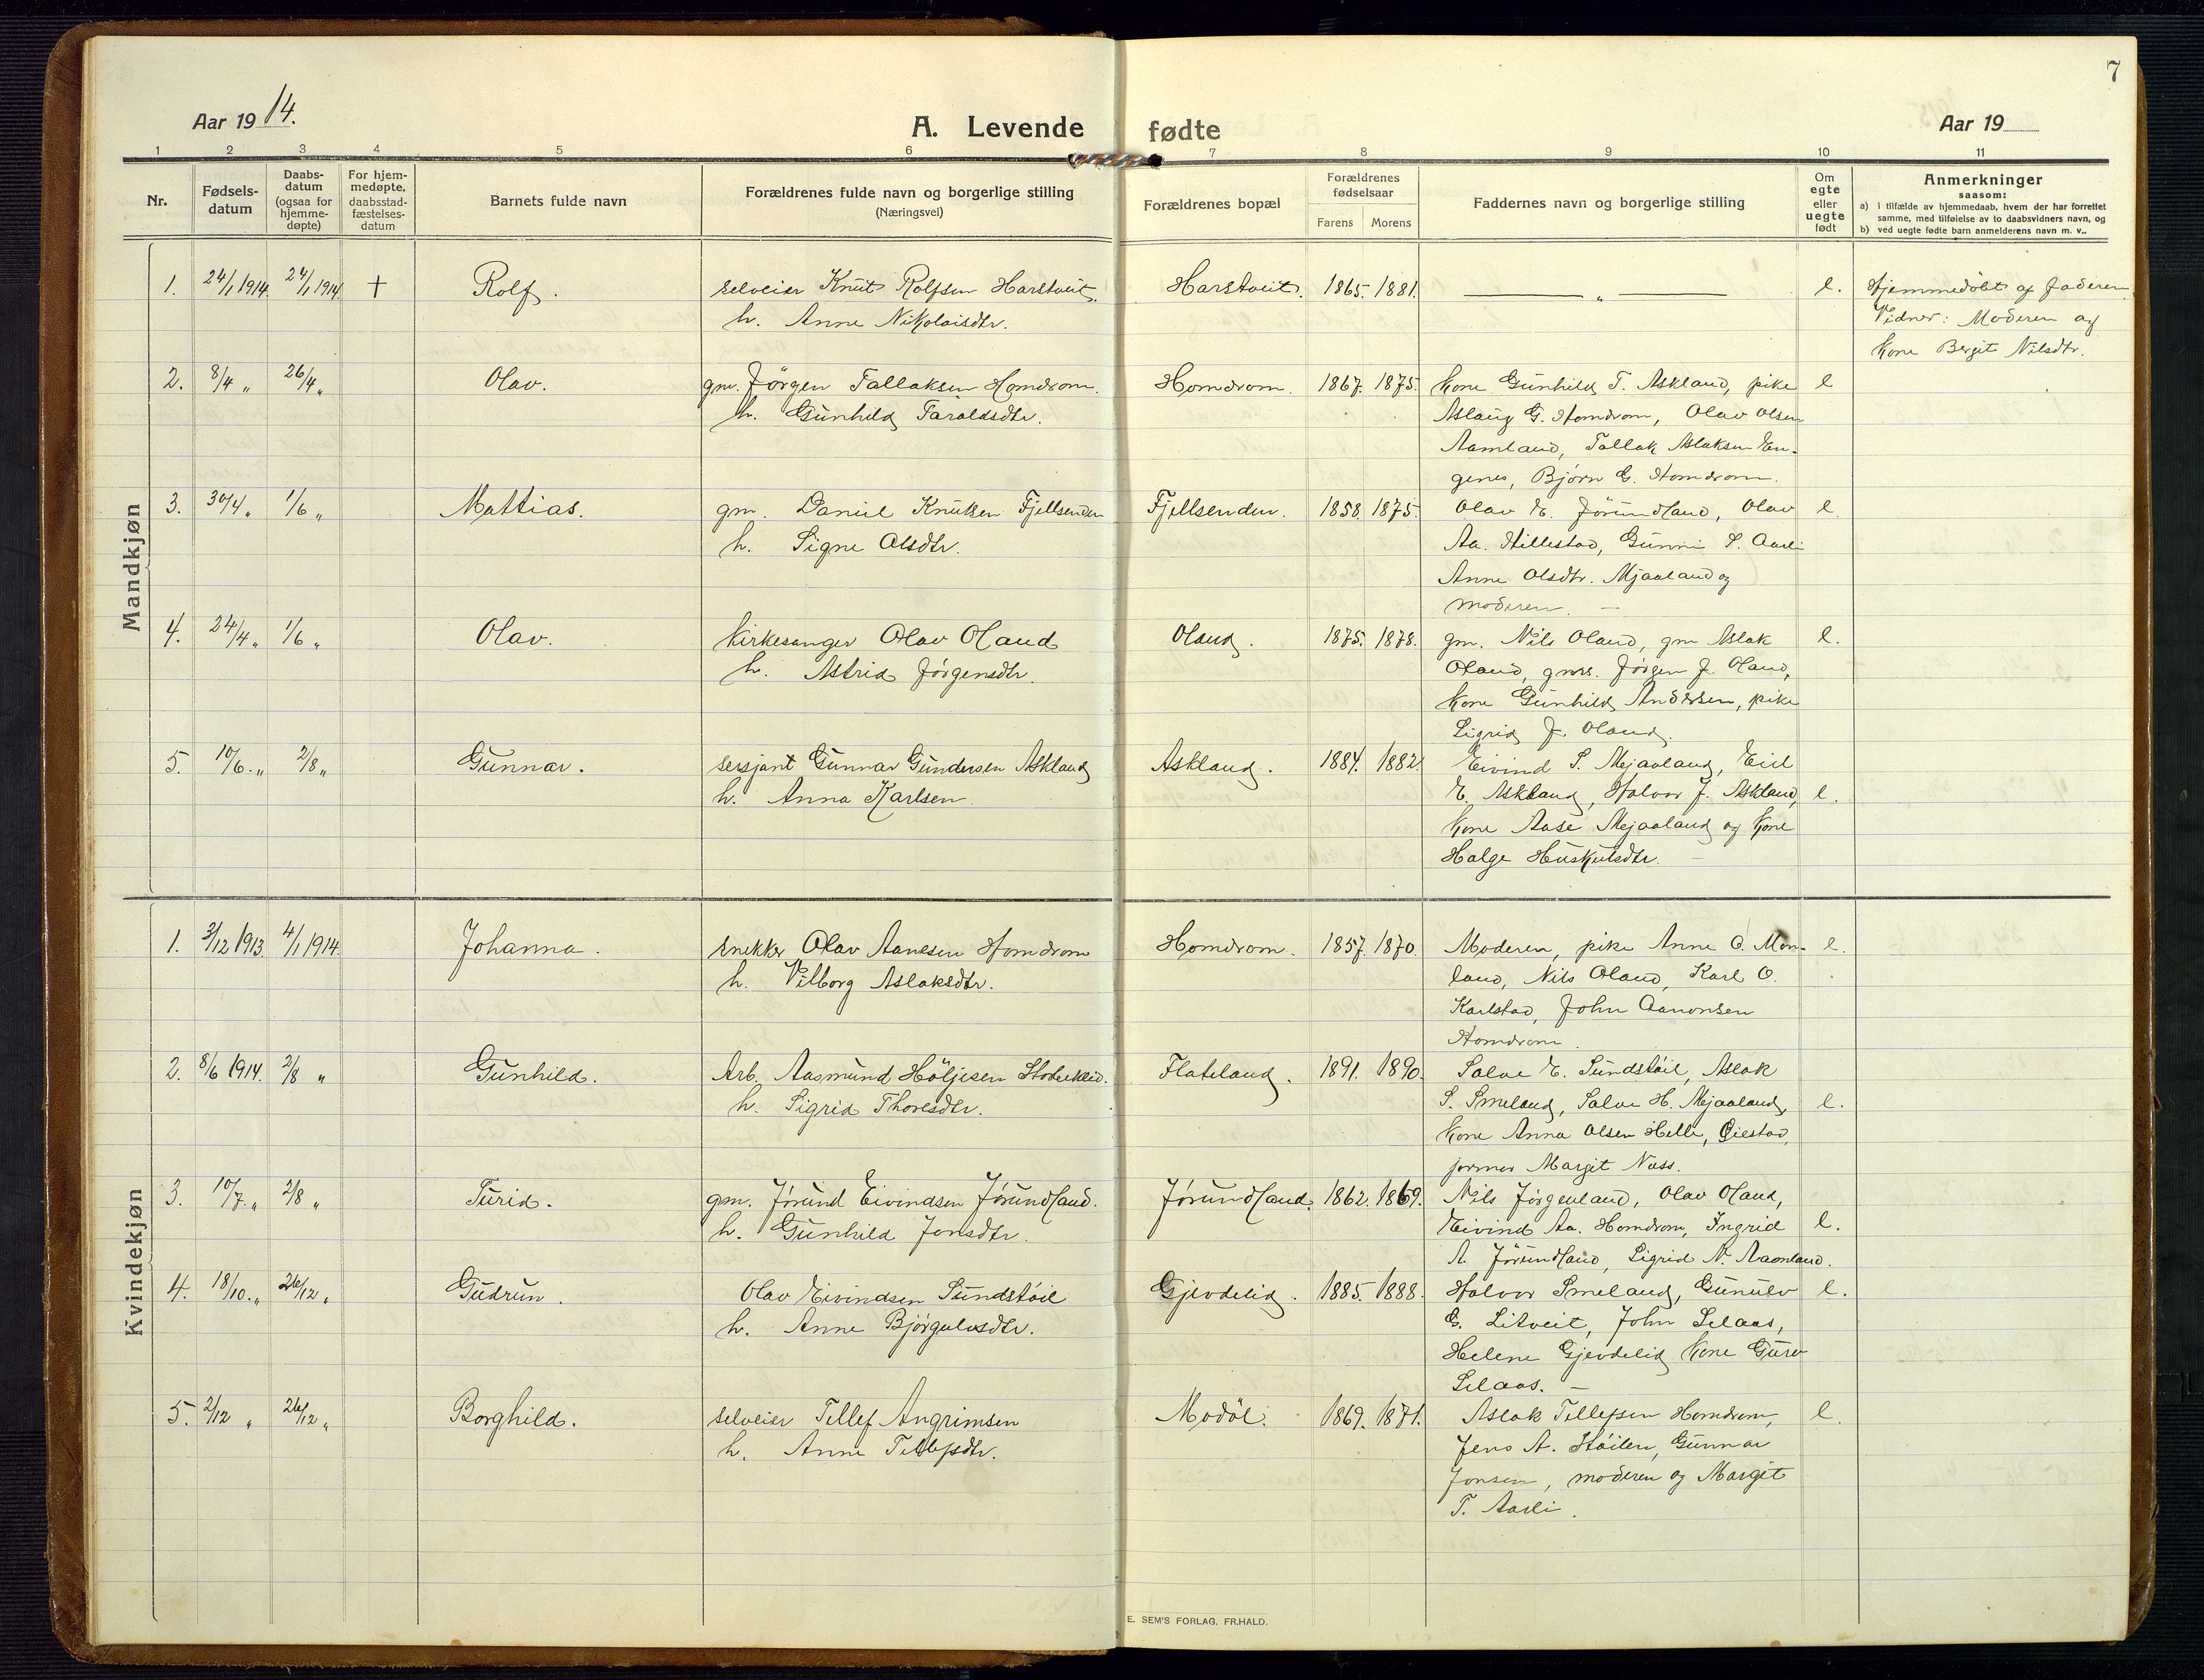 7
Aar 1914.
A. Levende fødte
Aar 19
1 2 3 4 5 6 7 8 9 10 11
Nr.
Fødsels-
datum
Daabs-
datum
(ogsaa for
hjemme-
døpte)
For hjem-
medøpte,
daabsstad-
fæstelses-
datum
Barnets fulde navn
Forældrenes fulde navn og borgerlige stilling
(Næringsvei)
Forældrenes bopæl
Forældrenes
fødselsaar
Farens Morens
Faddernes navn og borgerlige stilling
Om
egte
eller
uegte
født
Anmerkninger
saasom:
a) i tilfælde av hjemmedaab, hvem der har forrettet
samme, med tilføielse av to daabsvidners navn, og
b) ved uegte fødte barn anmelderens navn m. v..
Mandkjøn
1. 24/1 1914. 24/1 1914. + Rolf. selveier Knut Rolfsen Harstveit. Harstveit. 1865. 1881. — „ — e. Hjemmedöbt af faderen
h. Anne Nikolaisdtr. Vidner: Moderen og
Kone Bergit Nilsdtr.
2. 8/4 „ 26/4 „ Olav. gm. Jörgen Tallaksen Homdrom. Homdrom. 1867. 1875. Kone Gunhild T. Askland, pike e
h. Gunhild Taraldsdtr. Aslaug G. Homdrom, Olav Olsen
Aamland, Tallak Aslaksen En-
genes, Bjørn G. Homdrom.
3. 30/4 „ 1/6 „ Mattias. gm. Daniel Knutsen Fjellsenden Fjellsenden. 1858. 1875. Olav E. Jörundland, Olav e.
h. Signe Olsdtr. Aa. Hillestad, Gunni S. Aarli
Anne Olsdtr. Mjaaland og
moderen. —
4. 24/4 „ 1/6 „ Olav. Kirkesanger Olav Oland Oland. 1875. 1878. gm. Nils Oland, gm Aslak e.
h. Astrid Jörgensdtr. Oland, gms. Jörgen J. Oland,
Kone Gunhild Andersen, pike
Sigrid J. Oland.
5. 10/6. „ 2/8 „ Gunnar. sersjant Gunnar Gundersen Askland Askland. 1884. 1882. Eivind S. Mejaaland, Eiel
h. Anna Karlsen. E. Askland, Halvor J. Askland, e.
Kone Aase Mejaaland og Kone
Halge Huskulsdtr. —
Kvindekjøn
1. 3/12 1913. 4/1 1914. Johanna. snekker Olav Aanesen Homdrom Homdrom. 1857. 1870. Moderen, pike Anne O. Mon- e.
h. Vilborg Aslaksdtr. land, Nils Oland, Karl O.
Karlstad, John Aanonsen
Homdrom.
2. 8/6 1914. 2/8 „ Gunhild. Arb. Aasmund Höljesen Flateland. 1891. 1890. Salve E. Sundstöil, Aslak
h. Sigrid Thoresdtr. S. Smeland, Salve H. Mejaaland, e.
Kone Anna Olsen Helle, Öiestad,
jormor Margit Næss.
3. 10/7. „ 2/8 „ Turid. gm. Jörund Eivindsen Jörundland. Jörundland. 1862. 1869. Nils Jörgenland, Olav Oland,
h. Gunhild Jonsdtr. Eivind Aa. Homdrom, Ingrid e.
A. Jörundland, Sigrid N. Aamland.
4. 18/10. „ 26/12 „ Gudrun. Olav Eivindsen Sundstöil Gjevdelid. 1885. 1888. Halvor Smeland, Gunulv e.
h. Anne Björgulvsdtr. G. Litveit, John Selaas,
Helene Gjevdelid Kone Guro
Selaas. —
5. 2/12 „ 26/12 „ Borghild. selveier Tellef Angrimsen Modöl. 1869. 1871. Aslak Tellefsen Homdrom, e.
h. Anne Tellefsdtr. Jens A. Höilen, Gunnar
Jonsen, moderen og Margit
T. Aarli.
E. SEM'S FORLAG. FR.HALD.